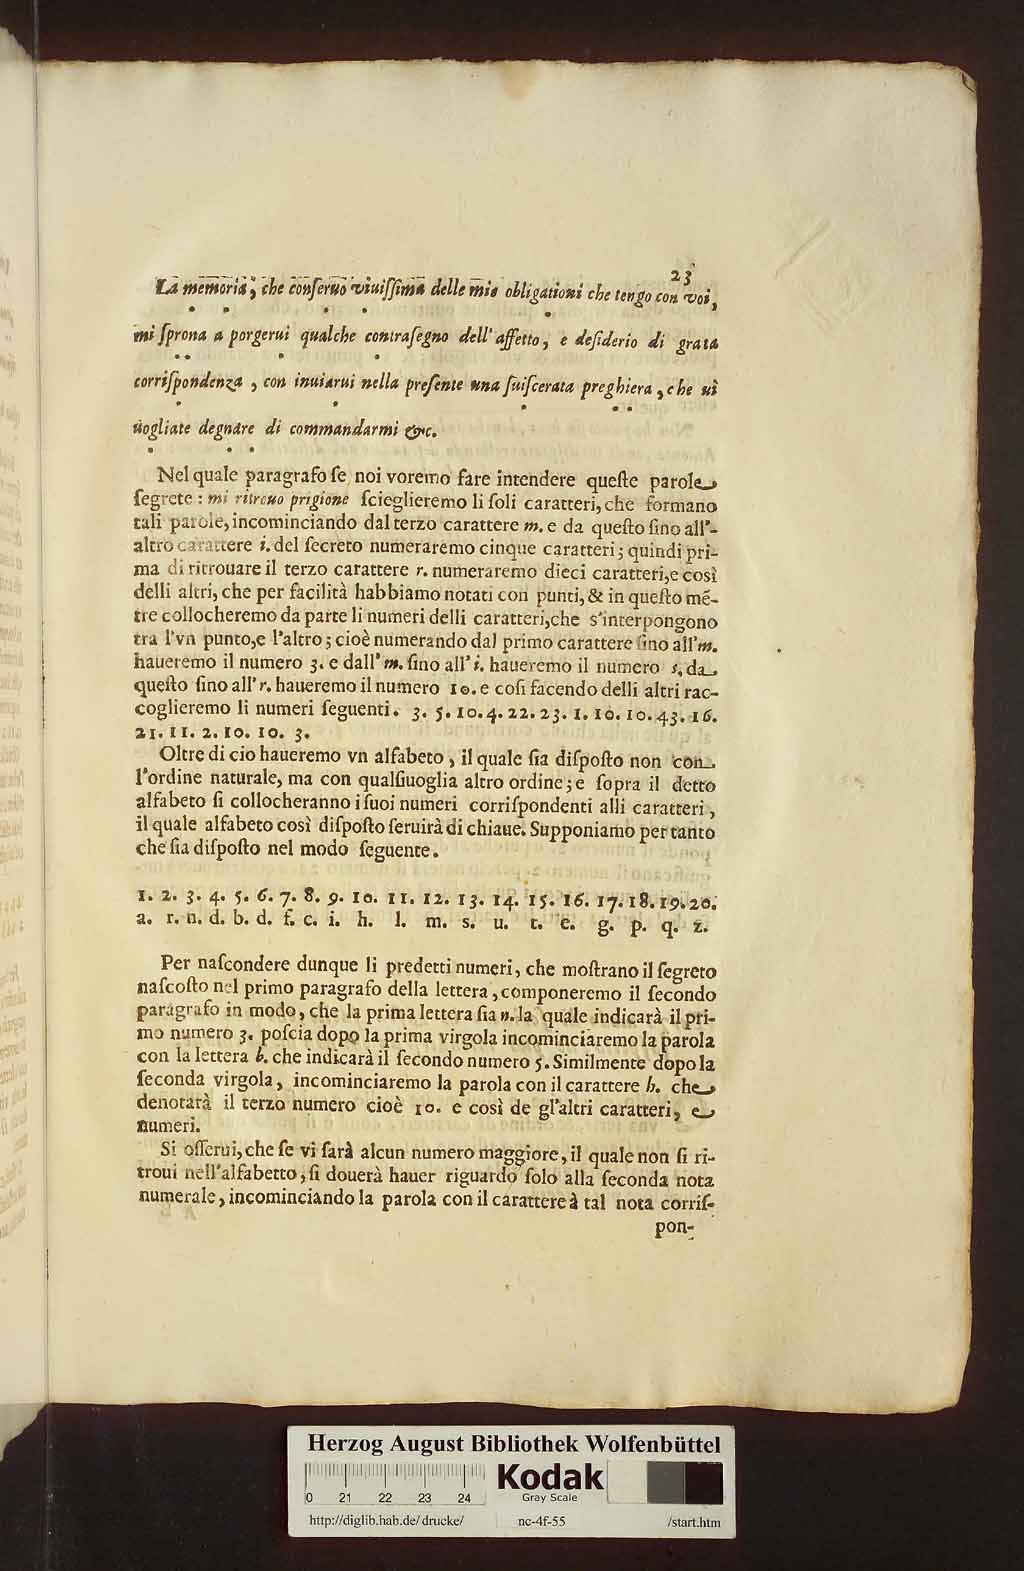 23
La memoria, che conſeruo viuiſſima delle mie obligationi che tengo con voi,
mi ſprona a porgerui qualche contraſegno dell'affetto, e deſiderio di grata
corriſpondenza, con inuiarui nella preſente una ſuiſcerata preghiera, che ui
uogliate degnare di commandarmi &c.
Nel quale paragrafo ſe noi voremo fare intendere queſte parole
ſegrete: mi ritrouo prigione ſcieglieremo li ſoli caratteri, che formano
tali parole, incominciando dal terzo carattere m. e da queſto ſino all'-
altro carattere i. del ſecreto numeraremo cinque caratteri; quindi pri-
ma di ritrouare il terzo carattere r. numeraremo dieci caratteri, e così
delli altri, che per facilità habbiamo notati con punti, & in queſto mẽ-
tre collocheremo da parte li numeri delli caratteri, che s'interpongono
tra l'vn punto, e l'altro; cioè numerando dal primo carattere ſino all'm.
haueremo il numero 3. e dall'm. ſino all'i. haueremo il numero 5. da
queſto ſino all'r. haueremo il numero 10. e coſi facendo delli altri rac-
coglieremo li numeri ſeguenti. 3. 5. 10. 4. 22. 23. 1. 10. 10. 43. 16.
21. 11. 2. 10. 10. 3.
Oltre di cio haueremo vn alfabeto, il quale ſia diſpoſto non con
l'ordine naturale, ma con qualſiuoglia altro ordine; e ſopra il detto
alfabeto ſi collocheranno i ſuoi numeri corriſpondenti alli caratteri,
il quale alfabeto così diſpoſto ſeruirà di chiaue. Supponiamo per tanto
che ſia diſpoſto nel modo ſeguente.
1. 2. 3. 4. 5. 6. 7. 8. 9. 10. 11. 12. 13. 14. 15. 16. 17. 18. 19. 20.
a. r. n. d. b. d. f. c. i. h. l. m. s. u. t. e. g. p. q. z.
Per naſcondere dunque li predetti numeri, che moſtrano il ſegreto
naſcoſto nel primo paragrafo della lettera, componeremo il ſecondo
paragrafo in modo, che la prima lettera ſia n. la quale indicarà il pri-
mo numero 3. poſcia dopo la prima virgola incominciaremo la parola
con la lettera b. che indicarà il ſecondo numero 5. Similmente dopo la
ſeconda virgola, incominciaremo la parola con il carattere h. che
denotarà il terzo numero cioè 10. e così de gl'altri caratteri, e
numeri.
Si oſſerui, che ſe vi ſarà alcun numero maggiore, il quale non ſi ri-
troui nell'alfabetto, ſi douerà hauer riguardo ſolo alla ſeconda nota
numerale, incominciando la parola con il carattere à tal nota corriſ-
pon-
Herzog August Bibliothek Wolfenbüttel
0 21 22 23 24
Kodak
Gray Scale
http://diglib.hab.de/drucke/ nc-4f-55 /start.htm